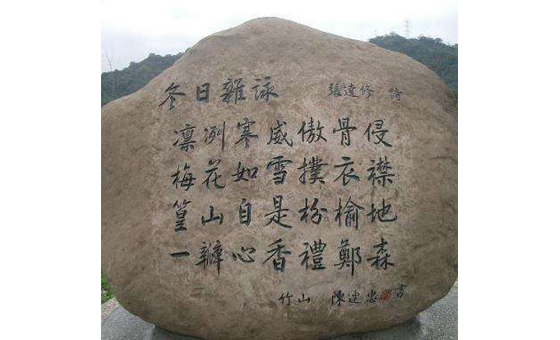 冬日雜詠 張達修 詩
凛冽寒威傲骨侵
梅花如雪撲衣襟
篁山自是枌榆地
一瓣心香禮鄭森
竹山 書